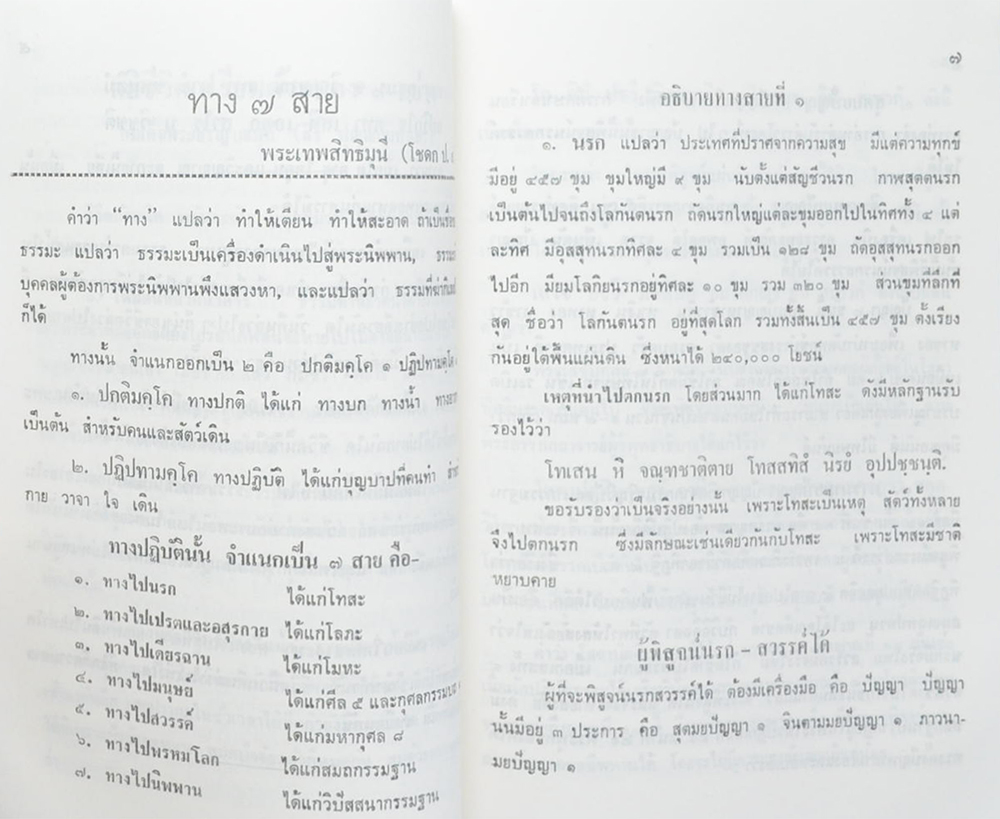 ทาง ๗ สาย
พระเทพสิทธิมุนี (โชดก ป.
คำว่า “ทาง” แปลว่า ทำให้เตียน ทำให้สะอาด ถ้าเป็นชื่อ
ธรรมะ แปลว่า ธรรมะเป็นเครื่องดำเนินไปสู่พระนิพพาน,
บุคคลผู้ต้องการพระนิพพานพึงแสวงหา, และแปลว่า
ก็ได้
ทางนั้น จำแนกออกเป็น ๒ คือ ปกติมคฺโค ๑ ปฏิปทามคฺโค
๑. ปกติมคฺโค ทางปกติ ได้แก่ ทางบก ทางน้ำ
เป็นต้น สำหรับคนและสัตว์เดิน
๒. ปฏิปทามคฺโค ทางปฏิบัติ ได้แก่บุญบาปที่คนทำ
กาย วาจา ใจ เดิน
ทางปฏิบัตินั้น จำแนกเป็น ๗ สาย คือ-
๑. ทางไปนรก ได้แก่โทสะ
๒. ทางไปเปรตและอสุรกาย ได้แก่โลภะ
๓. ทางไปเดียรฉาน ได้แก่โมหะ
๔. ทางไปมนุษย์ ได้แก่ศีล ๕ และกุศลกรรมบถ
๕. ทางไปสวรรค์ ได้แก่มหากุศล ๘
๖. ทางไปพรหมโลก ได้แก่สมถกรรมฐาน
๗. ทางไปนิพพาน ได้แก่วิปัสสนากรรมฐาน
๗
อธิบายทางสายที่ ๑
๑. นรก แปลว่า ประเทศที่ปราศจากความสุข มีแต่ความทุกข์
มีอยู่ ๔๕๗ ขุม ขุมใหญ่มี ๙ ขุม นับตั้งแต่สัญชีวนรก กาฬสุตตนรก
เป็นต้นไปจนถึงโลกันตนรก ถัดนรกใหญ่แต่ละขุมออกไปในทิศทั้ง ๔ แต่
ละทิศ มีอุสสุทนรกทิศละ ๔ ขุม รวมเป็น ๑๒๘ ขุม ถัดอุสสุทนรกออก
ไปอีก มียมโลกิยนรกอยู่ทิศละ ๑๐ ขุม รวม ๓๒๐ ขุม ส่วนขุมที่ลึกที่
สุด ชื่อว่า โลกันตนรก อยู่ที่สุดโลก รวมทั้งสิ้นเป็น ๔๕๗ ขุม ตั้งเรียง
กันอยู่ใต้พื้นแผ่นดิน ซึ่งหนาได้ ๒๔๐,๐๐๐ โยชน์
เหตุที่นำไปตกนรก โดยส่วนมาก ได้แก่โทสะ ดังมีหลักฐานรับ
รองไว้ว่า
โทเสน หิ จณฺฑชาติตาย โทสสทิสํ นิรยํ อุปฺปชฺชนฺติ.
ขอรับรองว่าเป็นจริงอย่างนั้น เพราะโทสะเป็นเหตุ สัตว์ทั้งหลาย
จึงไปตกนรก ซึ่งมีลักษณะเช่นเดียวกันกับโทสะ เพราะโทสะมีชาติ
หยาบคาย
ผู้พิสูจน์นรก - สวรรค์ได้
ผู้ที่จะพิสูจน์นรกสวรรค์ได้ ต้องมีเครื่องมือ คือ ปัญญา ปัญญา
นั้นมีอยู่ ๓ ประการ คือ สุตมยปัญญา ๑ จินตามยปัญญา ๑ ภาวนา-
มยปัญญา ๑